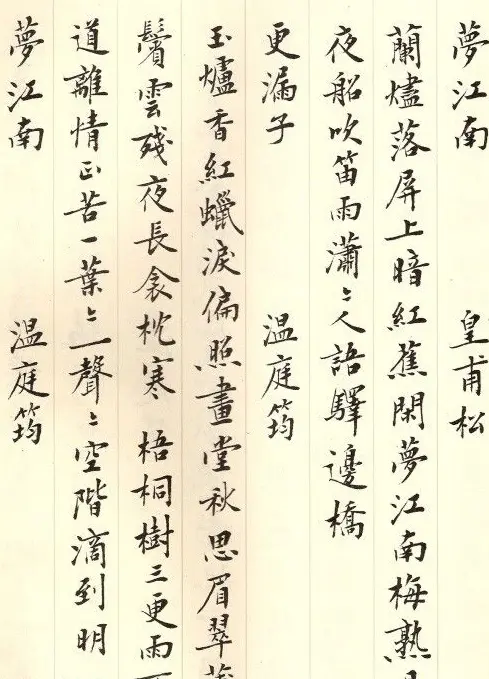 夢江南 皇甫松
蘭燼落屏上暗紅蕉閑夢江南梅熟
夜船吹笛雨瀟〻人語驛邊橋
更漏子 温庭筠
玉爐香紅蠟淚偏照畫堂秋思眉翠
鬢雲殘夜長衾枕寒 梧桐樹三更雨
道離情正苦一葉〻一聲〻空階滴到明
夢江南 温庭筠